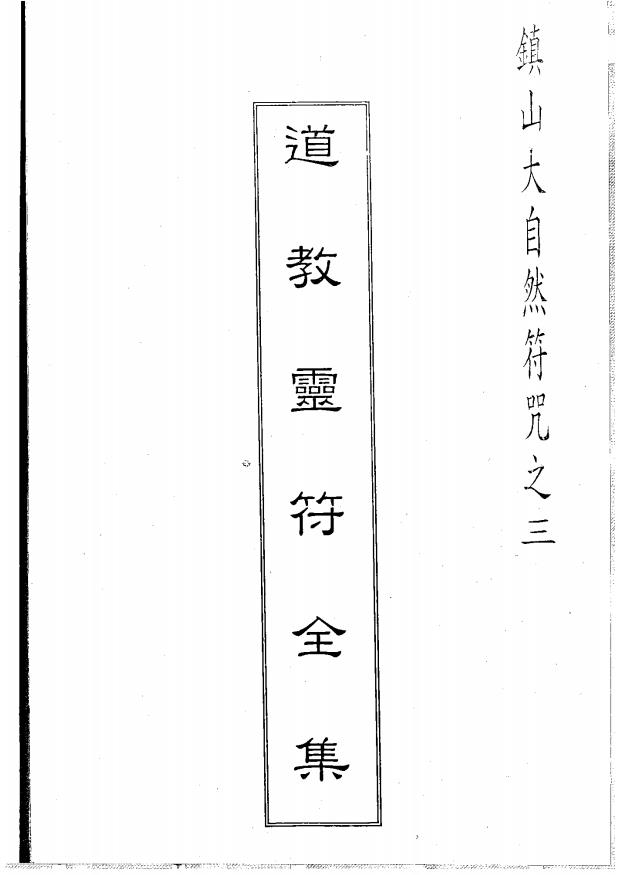 鎮山大自然符咒之三
道教靈符全集